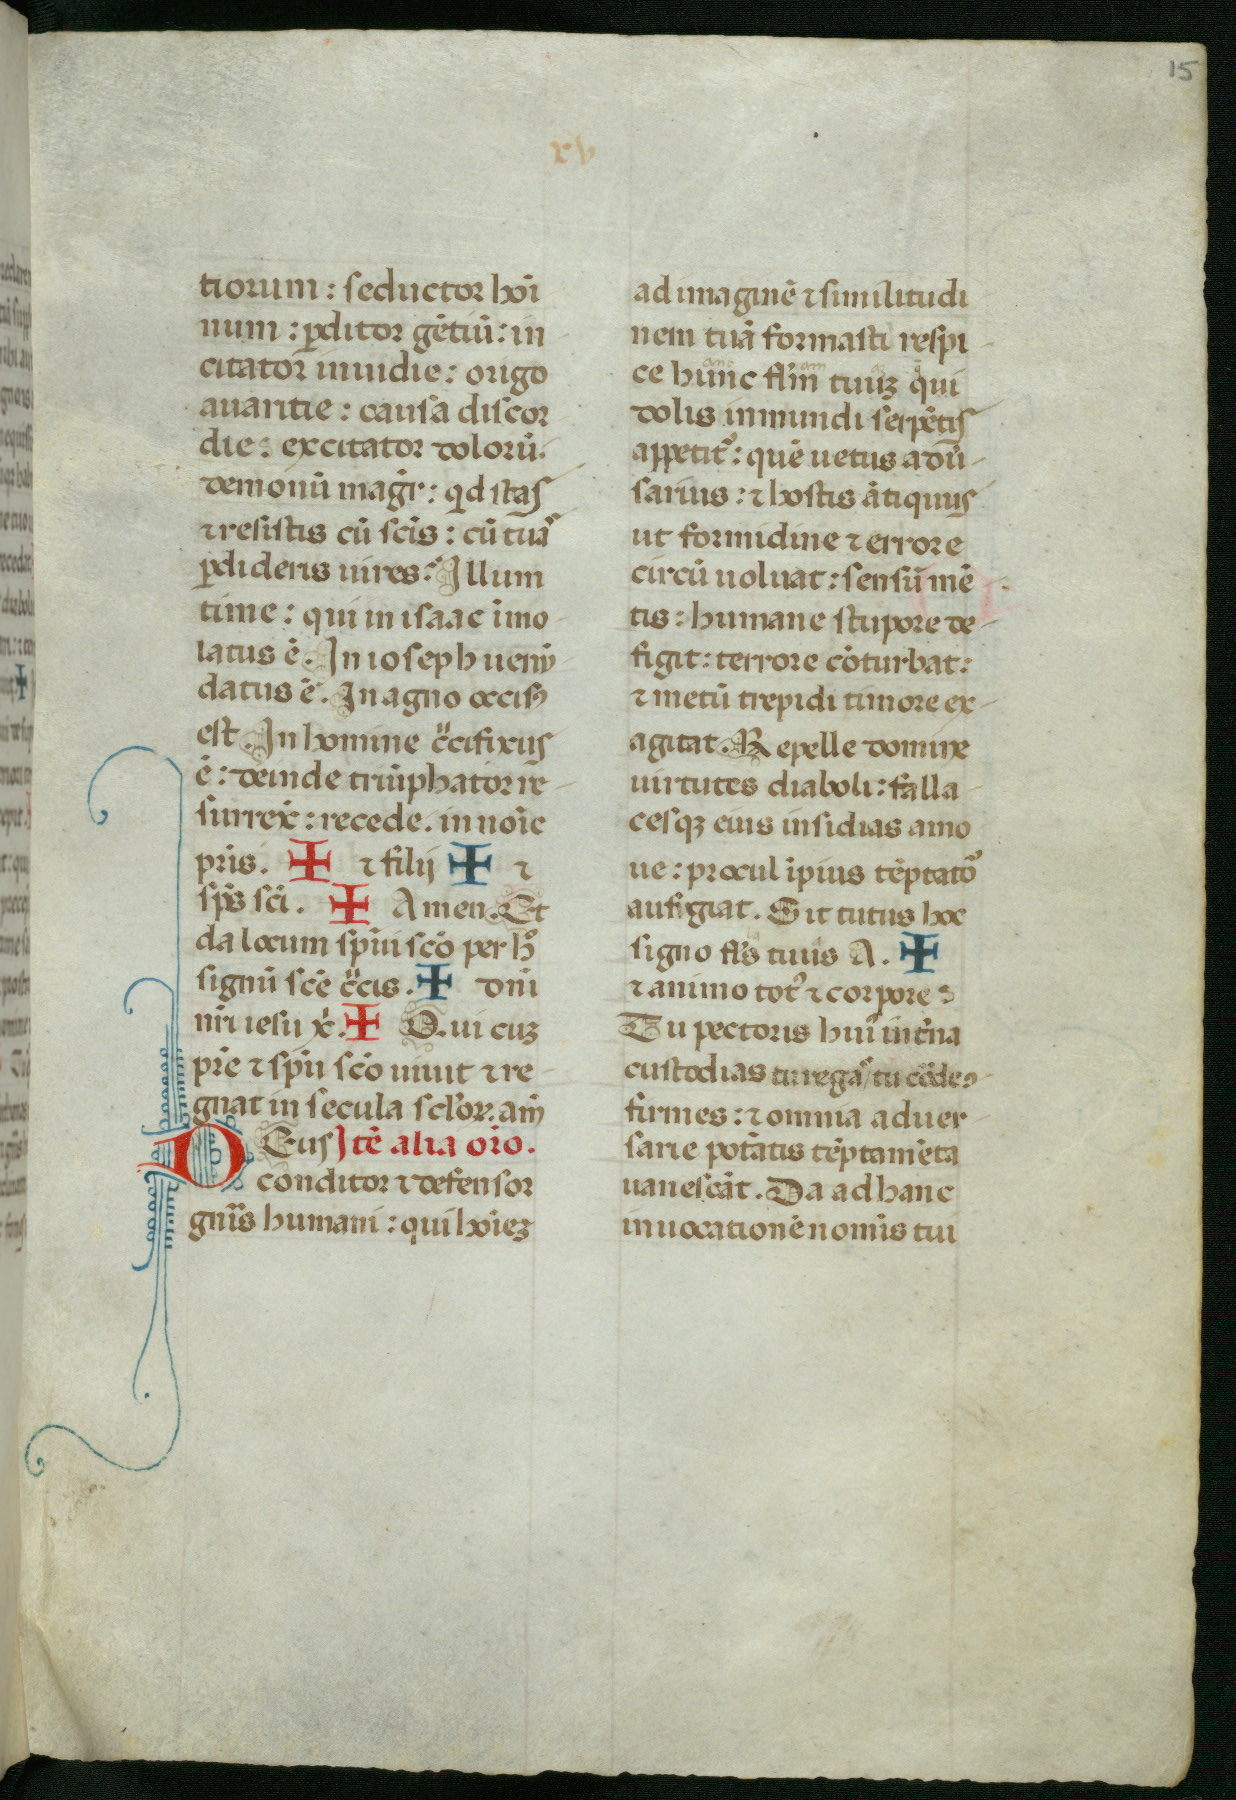 15
xv
tiorum : seductor hoı̄
num : ꝑditor gētiū : in
citator inuidie : origo
auaritie : causa discor
die : excitator dolorū.
demonū magr̄ : qd stas
⁊ resistis cū scīs : cū tuaˢ
ꝑdideris uires : Illum
time : qui in isaac īmo
latus ē . In ioseph uenū
datus ē . In agno occisꝰ
est . In homine c̈cifixus
ē : deinde triūphator re
surrex̄ : recede . in noīe
pr̄is . ✠ ⁊ filij ✠ ⁊
sp̄s sc̄i . ✠ Amen . Et
da locum sp̄ui sc̄o per h̊
signū sc̄e c̈cis . ✠ dn̄i
nr̄i iesu xi̇ . ✠ Qui cuꝫ
pr̄e ⁊ sp̄u sc̄o uiuit ⁊ re
gnat in secula sc̄loꝝ. am̄
Deus Itē alia or̄o .
conditor ⁊ defensor
gn̄is humani : qui hoīeꝫ
ad imaginē ⁊ similitudi
nem tuā formasti respi
ce hunc flm̄ tuuꝫ qui
dolis inmundi serpētis
appetitꝰ : quē uetus adū
sarius : ⁊ hostis ātiquus
ut formidine ⁊ errore
circū uoluat : sensū mē
tis : humane stupore de
figit : terrore cōturbat :
⁊ metū trepidi timore ex
agitat . Repelle domine
uirtutes diaboli : falla
cesqꝫ eius insidias amo
ue : procul īpius tēptatoꝰ
aufigiat . Sit tutus hoc
signo fl̄s tuus A . ✠
⁊ animo totꝰ ⁊ corpore
Tu pectoris huiꝰ int̄na
custodias tu regaˢ / tu
firmes : ⁊ omnia aduer
sarie potātis tēptamēta
uanescāt . Da ad hanc
inuocationē nomīs tui